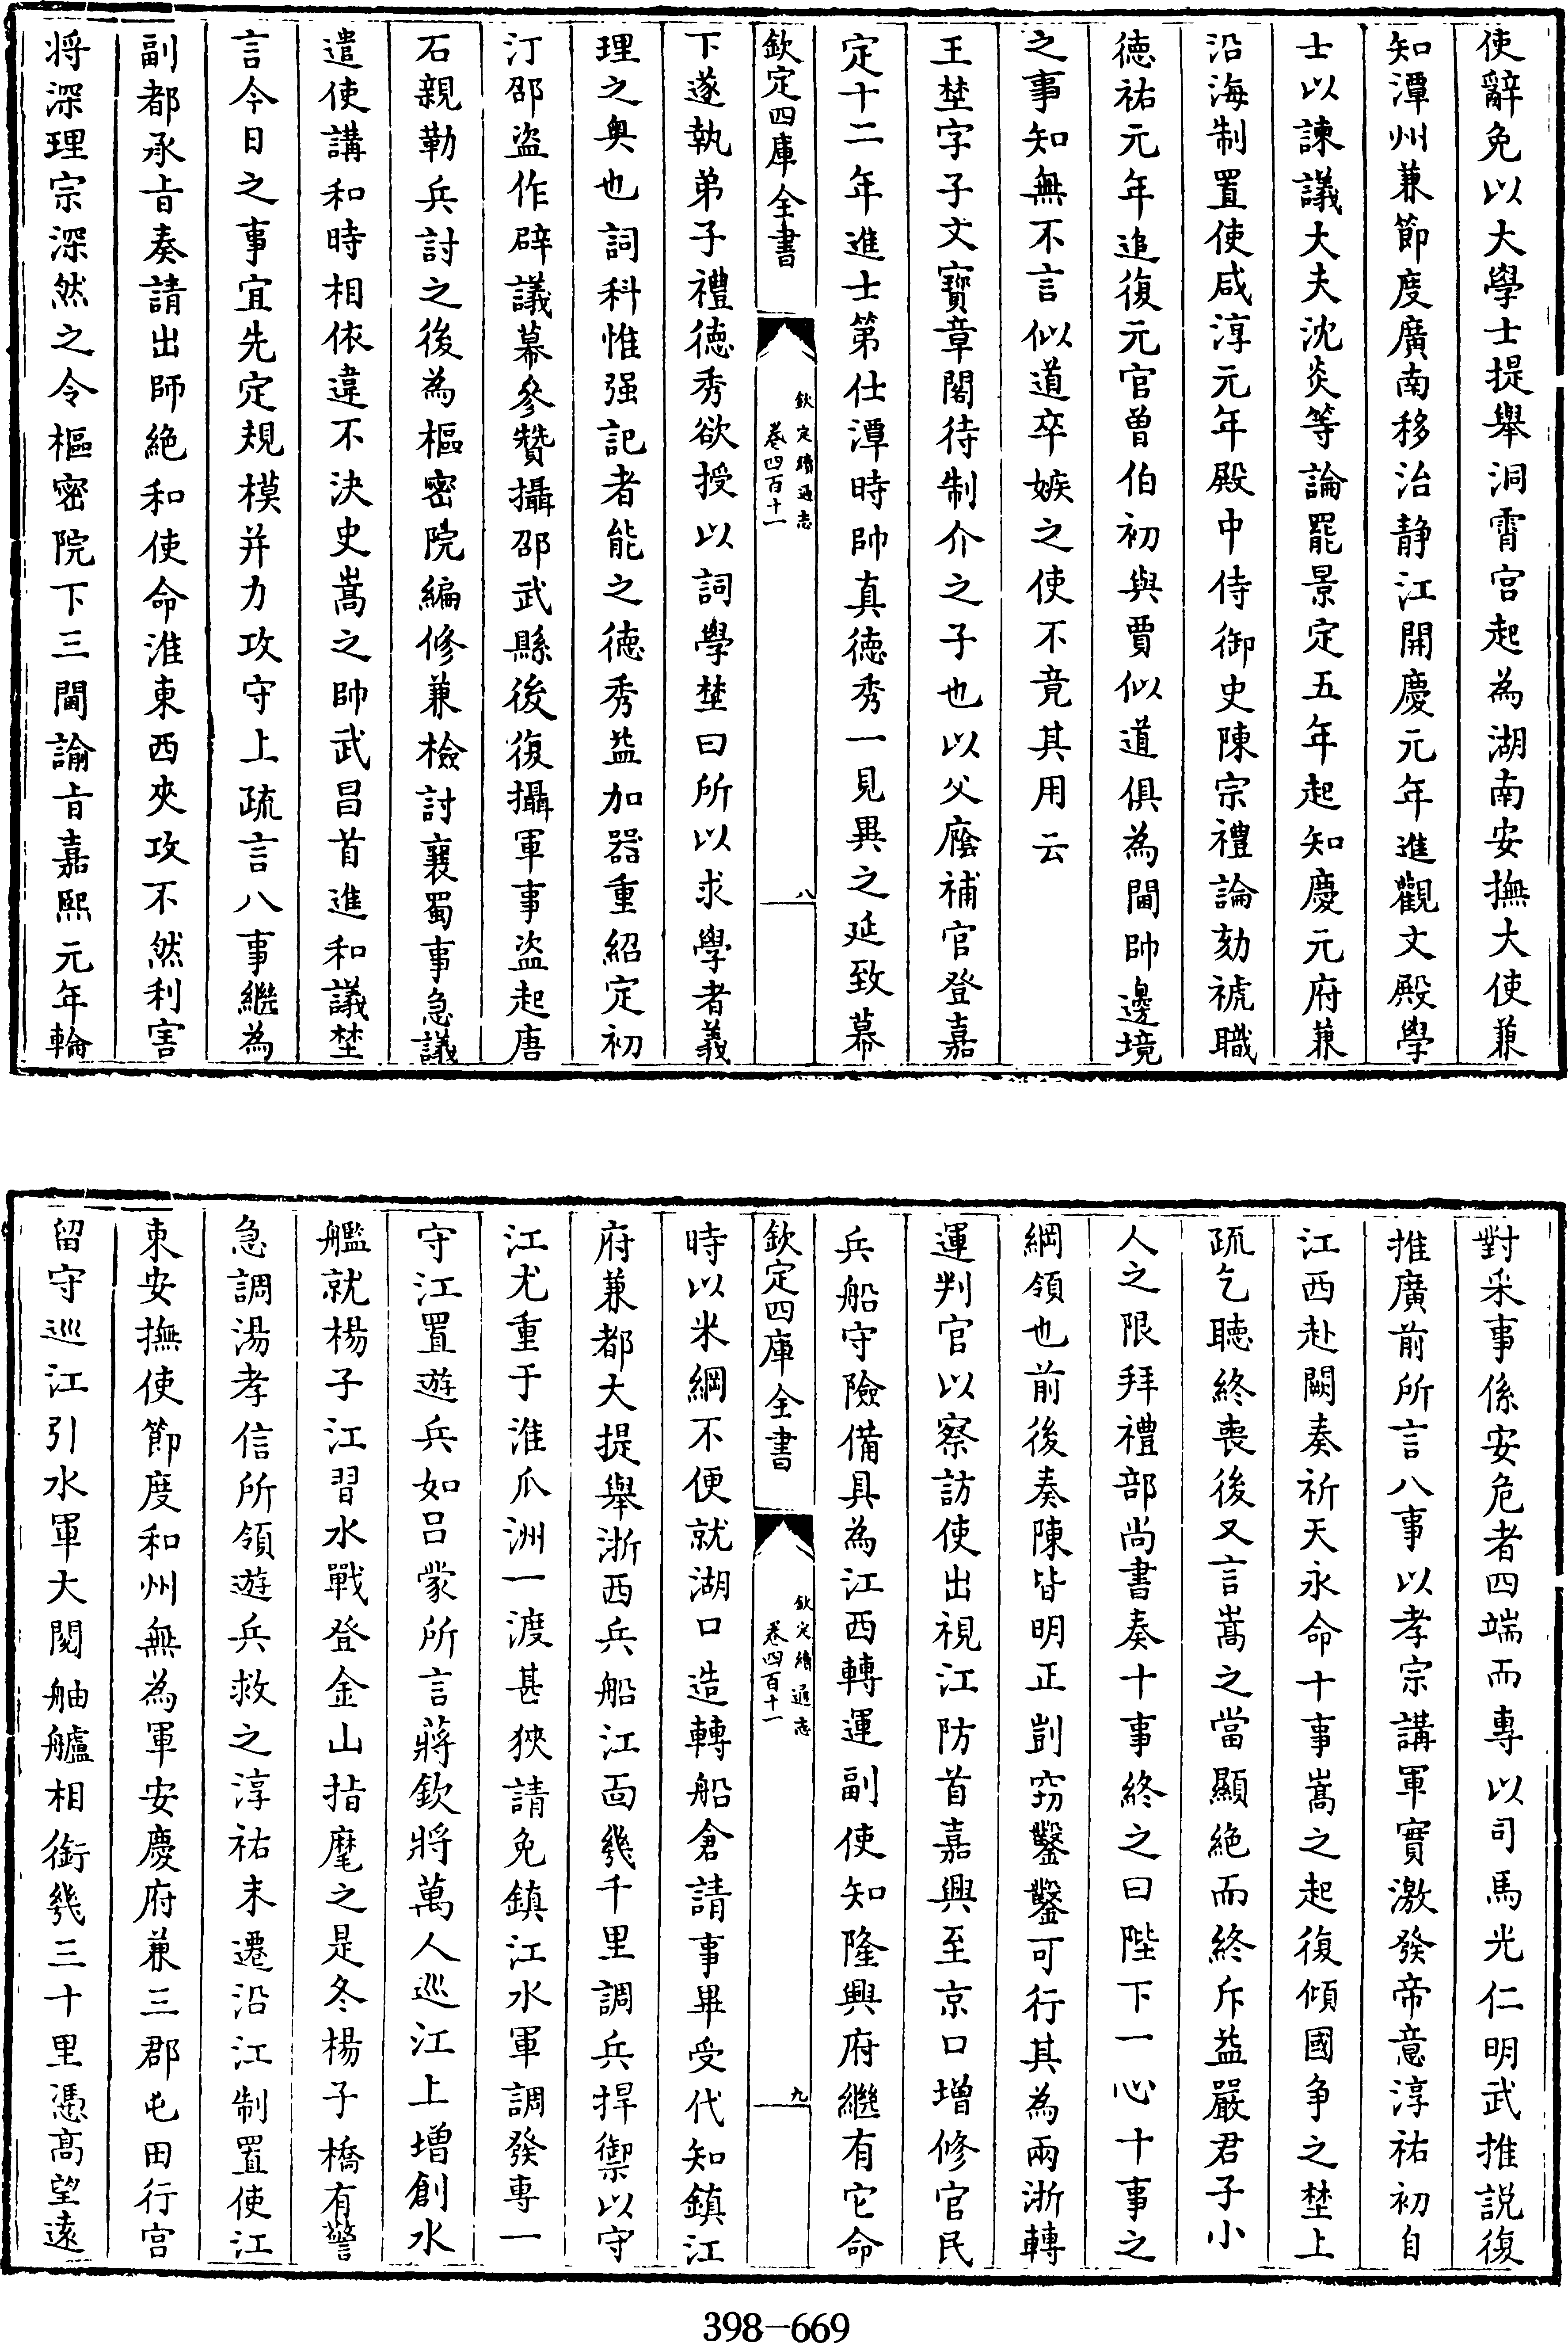 使辭免以大學士提舉洞霄宫起為湖南安撫大使兼
知潭州兼節度廣南移治静江開慶元年進觀文殿學
士以諫議大夫沈炎等論罷景定五年起知慶元府兼
沿海制置使咸淳元年殿中侍御史陳宗禮論劾褫職
徳祐元年追復元官曽伯初與賈似道俱為閫帥邊境
之事知無不言似道卒嫉之使不竟其用云
王埜字子文寳章閣待制介之子也以父廕補官登嘉
定十二年進士第仕潭時帥真徳秀一見異之延致幕
欽定四庫全書
欽定續通志
卷四百十一
八
下遂執弟子禮徳秀欲授以詞學埜曰所以求學者義
理之奥也詞科惟强記者能之徳秀益加器重紹定初
汀邵盗作辟議幕參贊攝邵武縣後復攝軍事盗起唐
石親勒兵討之後為樞密院編修兼檢討襄蜀事急議
遣使講和時相依違不決史嵩之帥武昌首進和議埜
言今日之事宜先定規模并力攻守上疏言八事繼為
副都承㫖奏請出師絶和使命淮東西夾攻不然利害
将深理宗深然之令樞密院下三閫諭㫖嘉熙元年輪
對采事係安危者四端而專以司馬光仁明武推説復
推廣前所言八事以孝宗講軍實激發帝意淳祐初自
江西赴闕奏祈天永命十事嵩之起復傾國争之埜上
疏乞聽終喪後又言嵩之當顯絶而終斥益嚴君子小
人之限拜禮部尚書奏十事終之曰陛下一心十事之
綱領也前後奏陳皆明正剴窃鑿鑿可行其為兩浙轉
運判官以察訪使出視江防首嘉興至京口增修官民
兵船守險備具為江西轉運副使知隆興府繼有它命
欽定四庫全書
欽定續通志
卷四百十一
九
時以米綱不便就湖口造轉船倉請事畢受代知鎮江
府兼都大提舉浙西兵船江面幾千里調兵捍禦以守
江尤重于淮爪洲一渡甚狹請免鎮江水軍調發專一
守江置遊兵如吕蒙所言蔣欽將萬人巡江上增創水
艦就楊子江習水戰登金山指麾之是冬楊子橋有警
急調湯孝信所領遊兵救之淳祐末遷沿江制置使江
東安撫使節度和州無為軍安慶府兼三郡屯田行宫
留守巡江引水軍大閱舳艫相銜幾三十里憑髙望遠
398-669